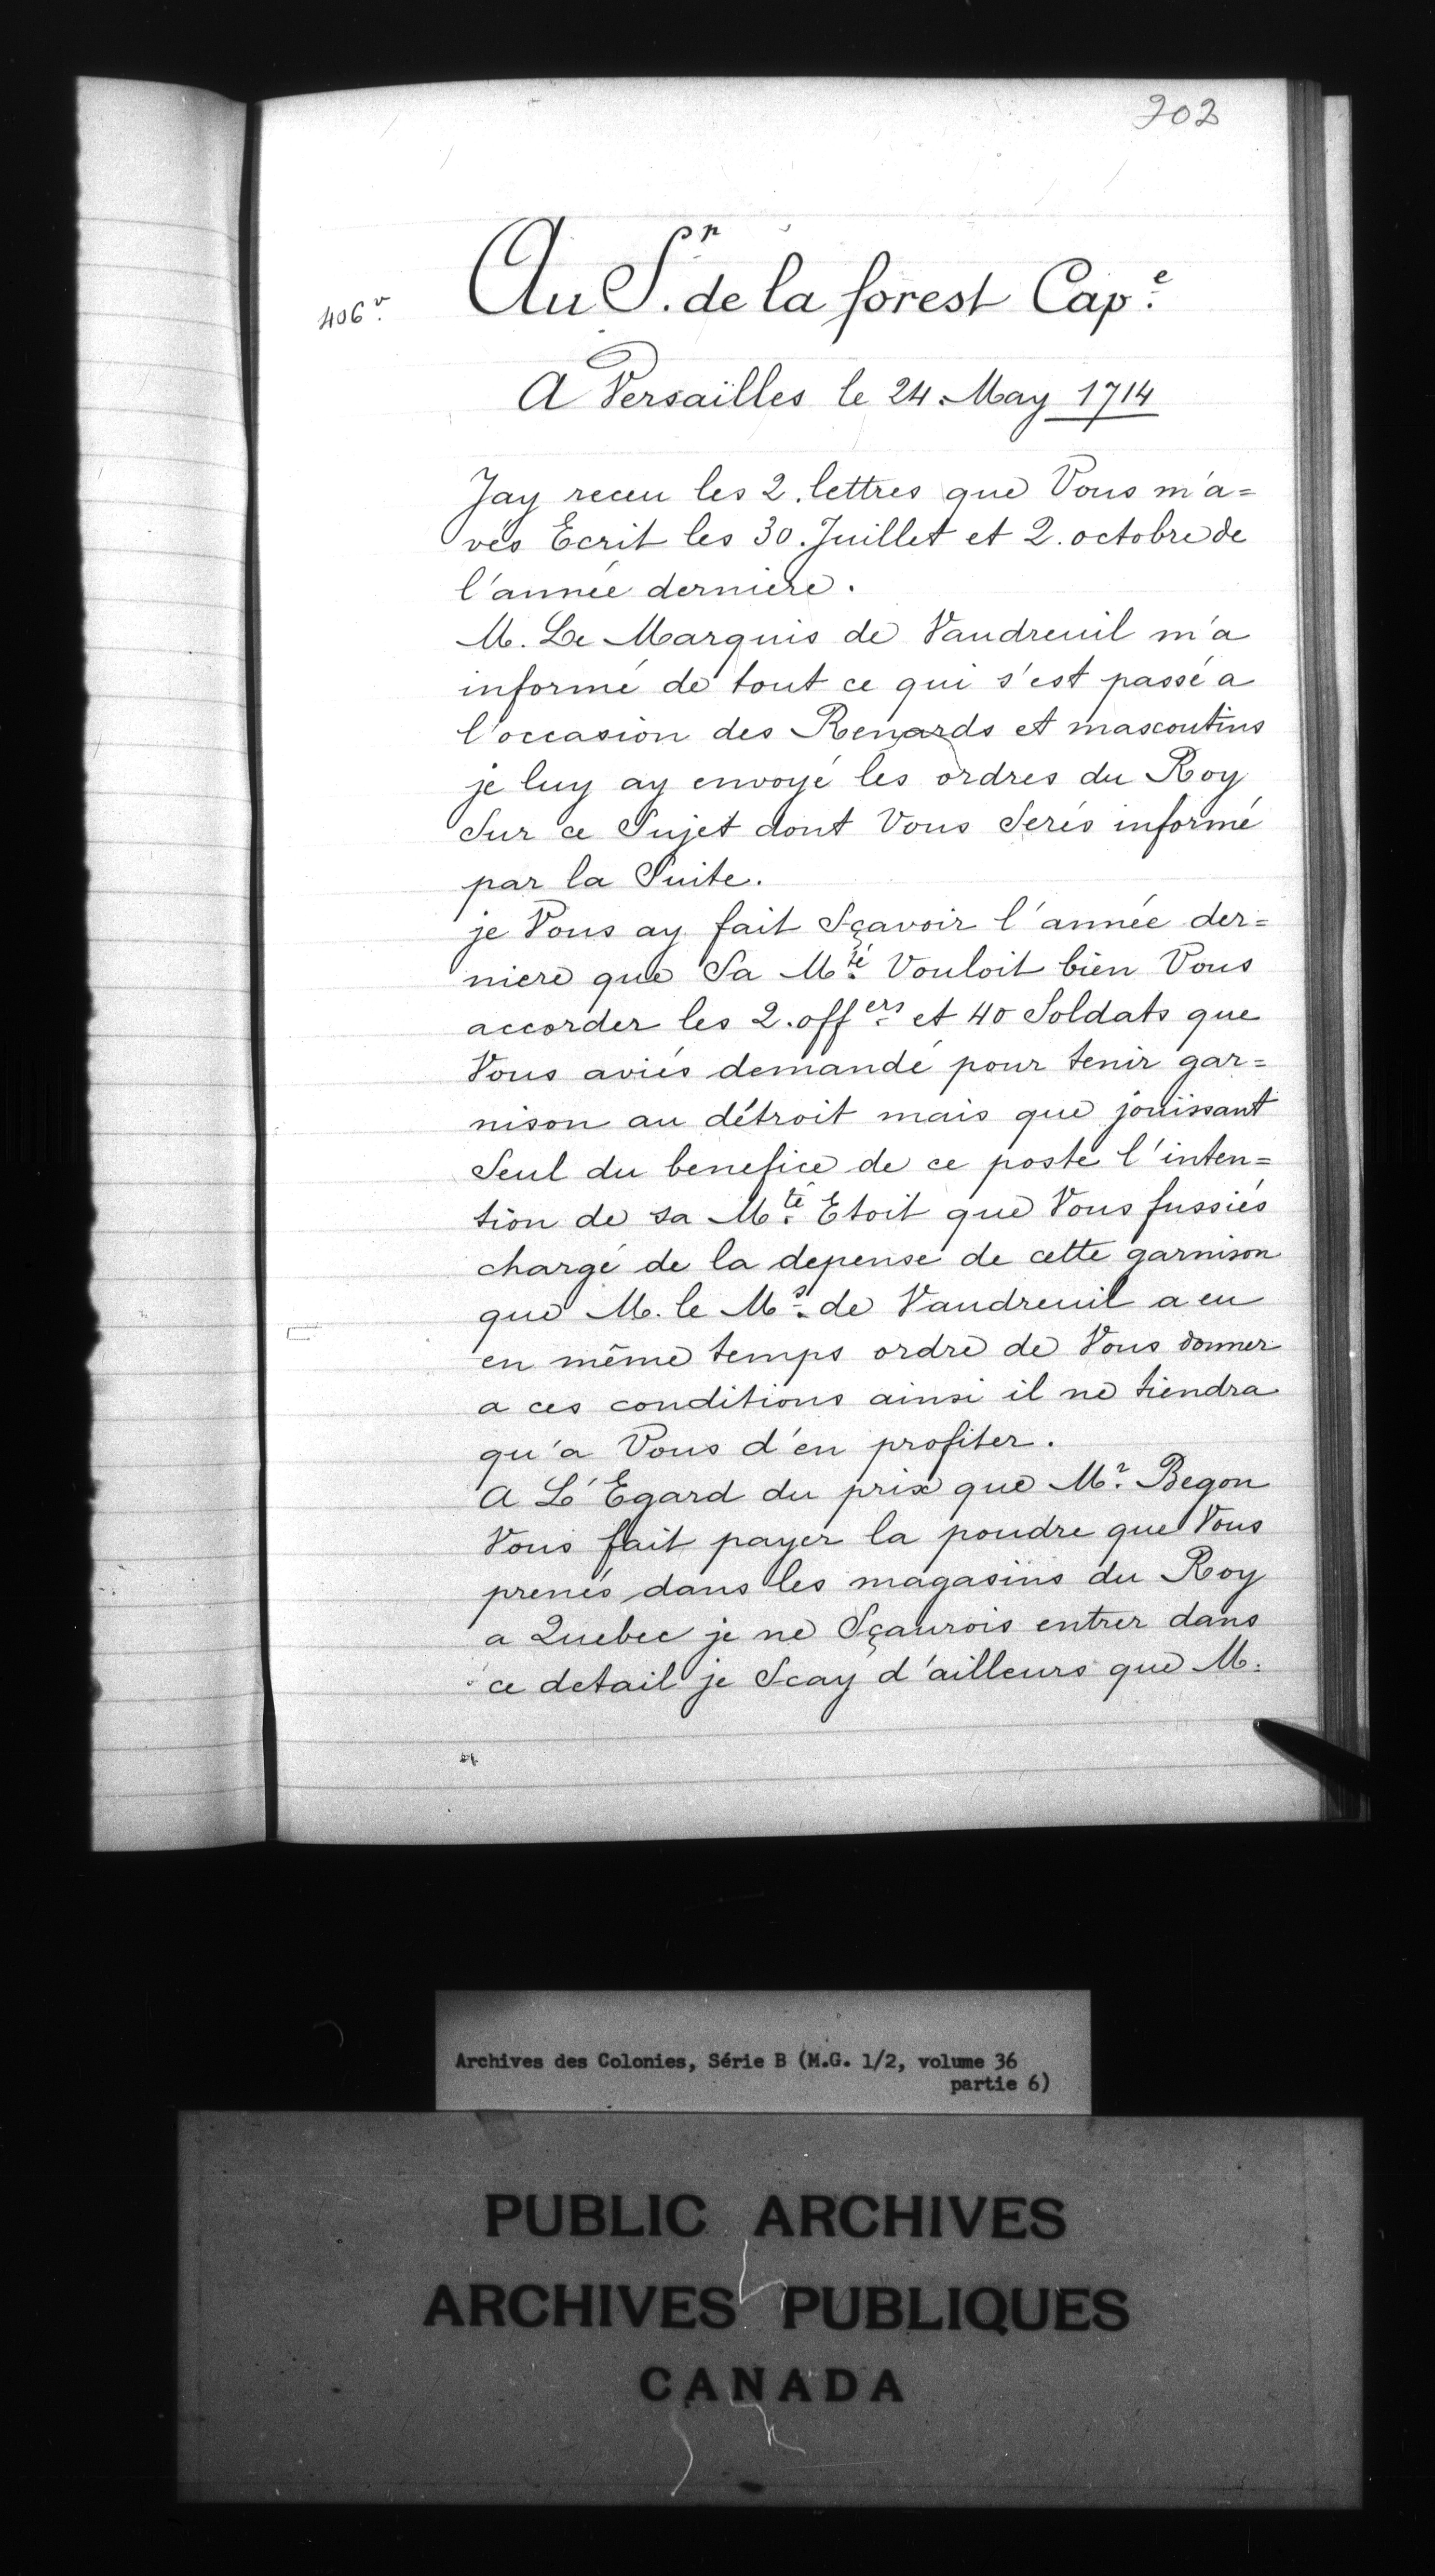 202
406 v.
Au S.r de la forest Cap.e
A Versailles le 24 May 1714
Jay receu les 2. lettres que Vous m'a=
vés Ecrit les 30. Juillet et 2. octobre de
l'année derniere.
M. Le Marquis de Vaudreuil m'a
informé de tout ce qui s'est passé a
l'occasion des Renards et mascoutins
je luy ay envoyé les ordres du Roy
Sur ce Sujet dont Vous Serés informé
par la Suite.
je Vous ay fait Sçavoir l'année der=
niere que Sa M.té Vouloit bien Vous
accorder les 2. off.ers et 40 Soldats que
Vous aviés demandé pour tenir gar=
nison au détroit mais que jouissant
Seul du benefice de ce poste l'inten=
tion de sa M.té Etoit que Vous fussiés
chargé de la depense de cette garnison
que M. le M.s de Vaudreuil a eu
en même temps ordre de Vous donner
a ces conditions ainsi il ne tiendra
qu'a Vous d'en profiter.
A L'Egard du prix que M.r Begon
Vous fait payer la poudre que Vous
prenés dans les magasins du Roy
a Quebec je ne Sçaurois entrer dans
ce detail je Scay d'ailleurs que M.
Archives des Colonies, Série B (M.G. 1/2, volume 36
partie 6)
PUBLIC ARCHIVES
ARCHIVES PUBLIQUES
CANADA